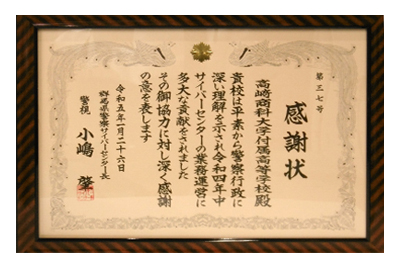 第三七号
感謝状
高崎商科大学付属高等学校殿
貴校は平素から警察行政に
深い理解を示され令和四年中
サイバーセンターの業務運営に
多大な貢献をされました
その御協力に対し深く感謝
の意を表します
令和五年一月二十六日
群馬県警察サイバーセンター長
警視 小嶋 肇